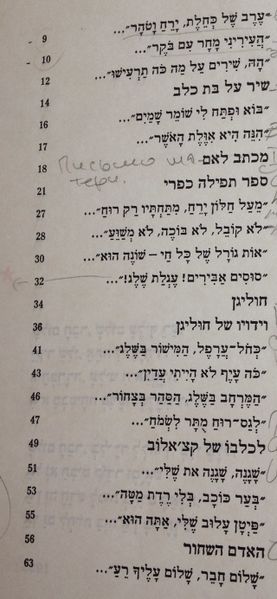 "עֶרֶב שֶׁל כְּחֵלֶת, יָרֵחַ וָטֹהַר"...
"הֲעִירִינִי מָחָר עִם בֹּקֶר"... 9
"הָהּ, שִׁירִים עַל מַה כֹּה תַרְעִישׁוּ"... 10
שיר על בת כלב 12
"בּוֹא וּפְתַח לִי שׁוֹמֵר שָׁמַיִם"... 14
"הִנֵּה הִיא אִוֶּלֶת הָאֹשֶׁר"... 16
מכתב לאם 17
Письмо матери. 18
ספר תפילה כפרי 21
"מֵעַל חַלּוֹן יָרֵחַ, מִתַּחְתָּיו רַק רוּחַ"... 27
"לֹא קוֹבֵל, לֹא בּוֹכֶה, לֹא מְשַׁוֵּעַ"... 28
"אוֹת גּוֹרָל שֶׁל כָּל חַי – שׁוֹנֶה הוּא"... 30
"סוּסִים אַבִּירִים! עֶגְלַת שֶׁלֶג!"... 32
חוליגן 34
וידויו של חוליגן 36
"כְּחֹל־עֲרָפֶל, הַמִּישׁוֹר בַּשֶּׁלֶג"... 41
"כֹּה עָיֵף לֹא הָיִיתִי עֲדַיִן"... 43
"הַמֶּרְחָב בַּשֶּׁלֶג, הַסַּהַר בְּצָחוֹר"... 46
"לְגַס־רוּחַ מֻתָּר לִשְׂמֹחַ"... 47
לכלבו של קצ'אלוב 49
"שָׁגַנֶּה, שָׁגַנֶּה אַת שֶׁלִּי"... 51
"בְּעַר כּוֹכָב, בְּלִי רֶדֶת מַטָּה"... 53
"פַּיְטָן עָלוּב שֶׁלִּי, אַתָּה הוּא"... 55
האדם השחור 56
"שָׁלוֹם חָבֵר, שָׁלוֹם עָלֶיךָ רֵעַ"... 63